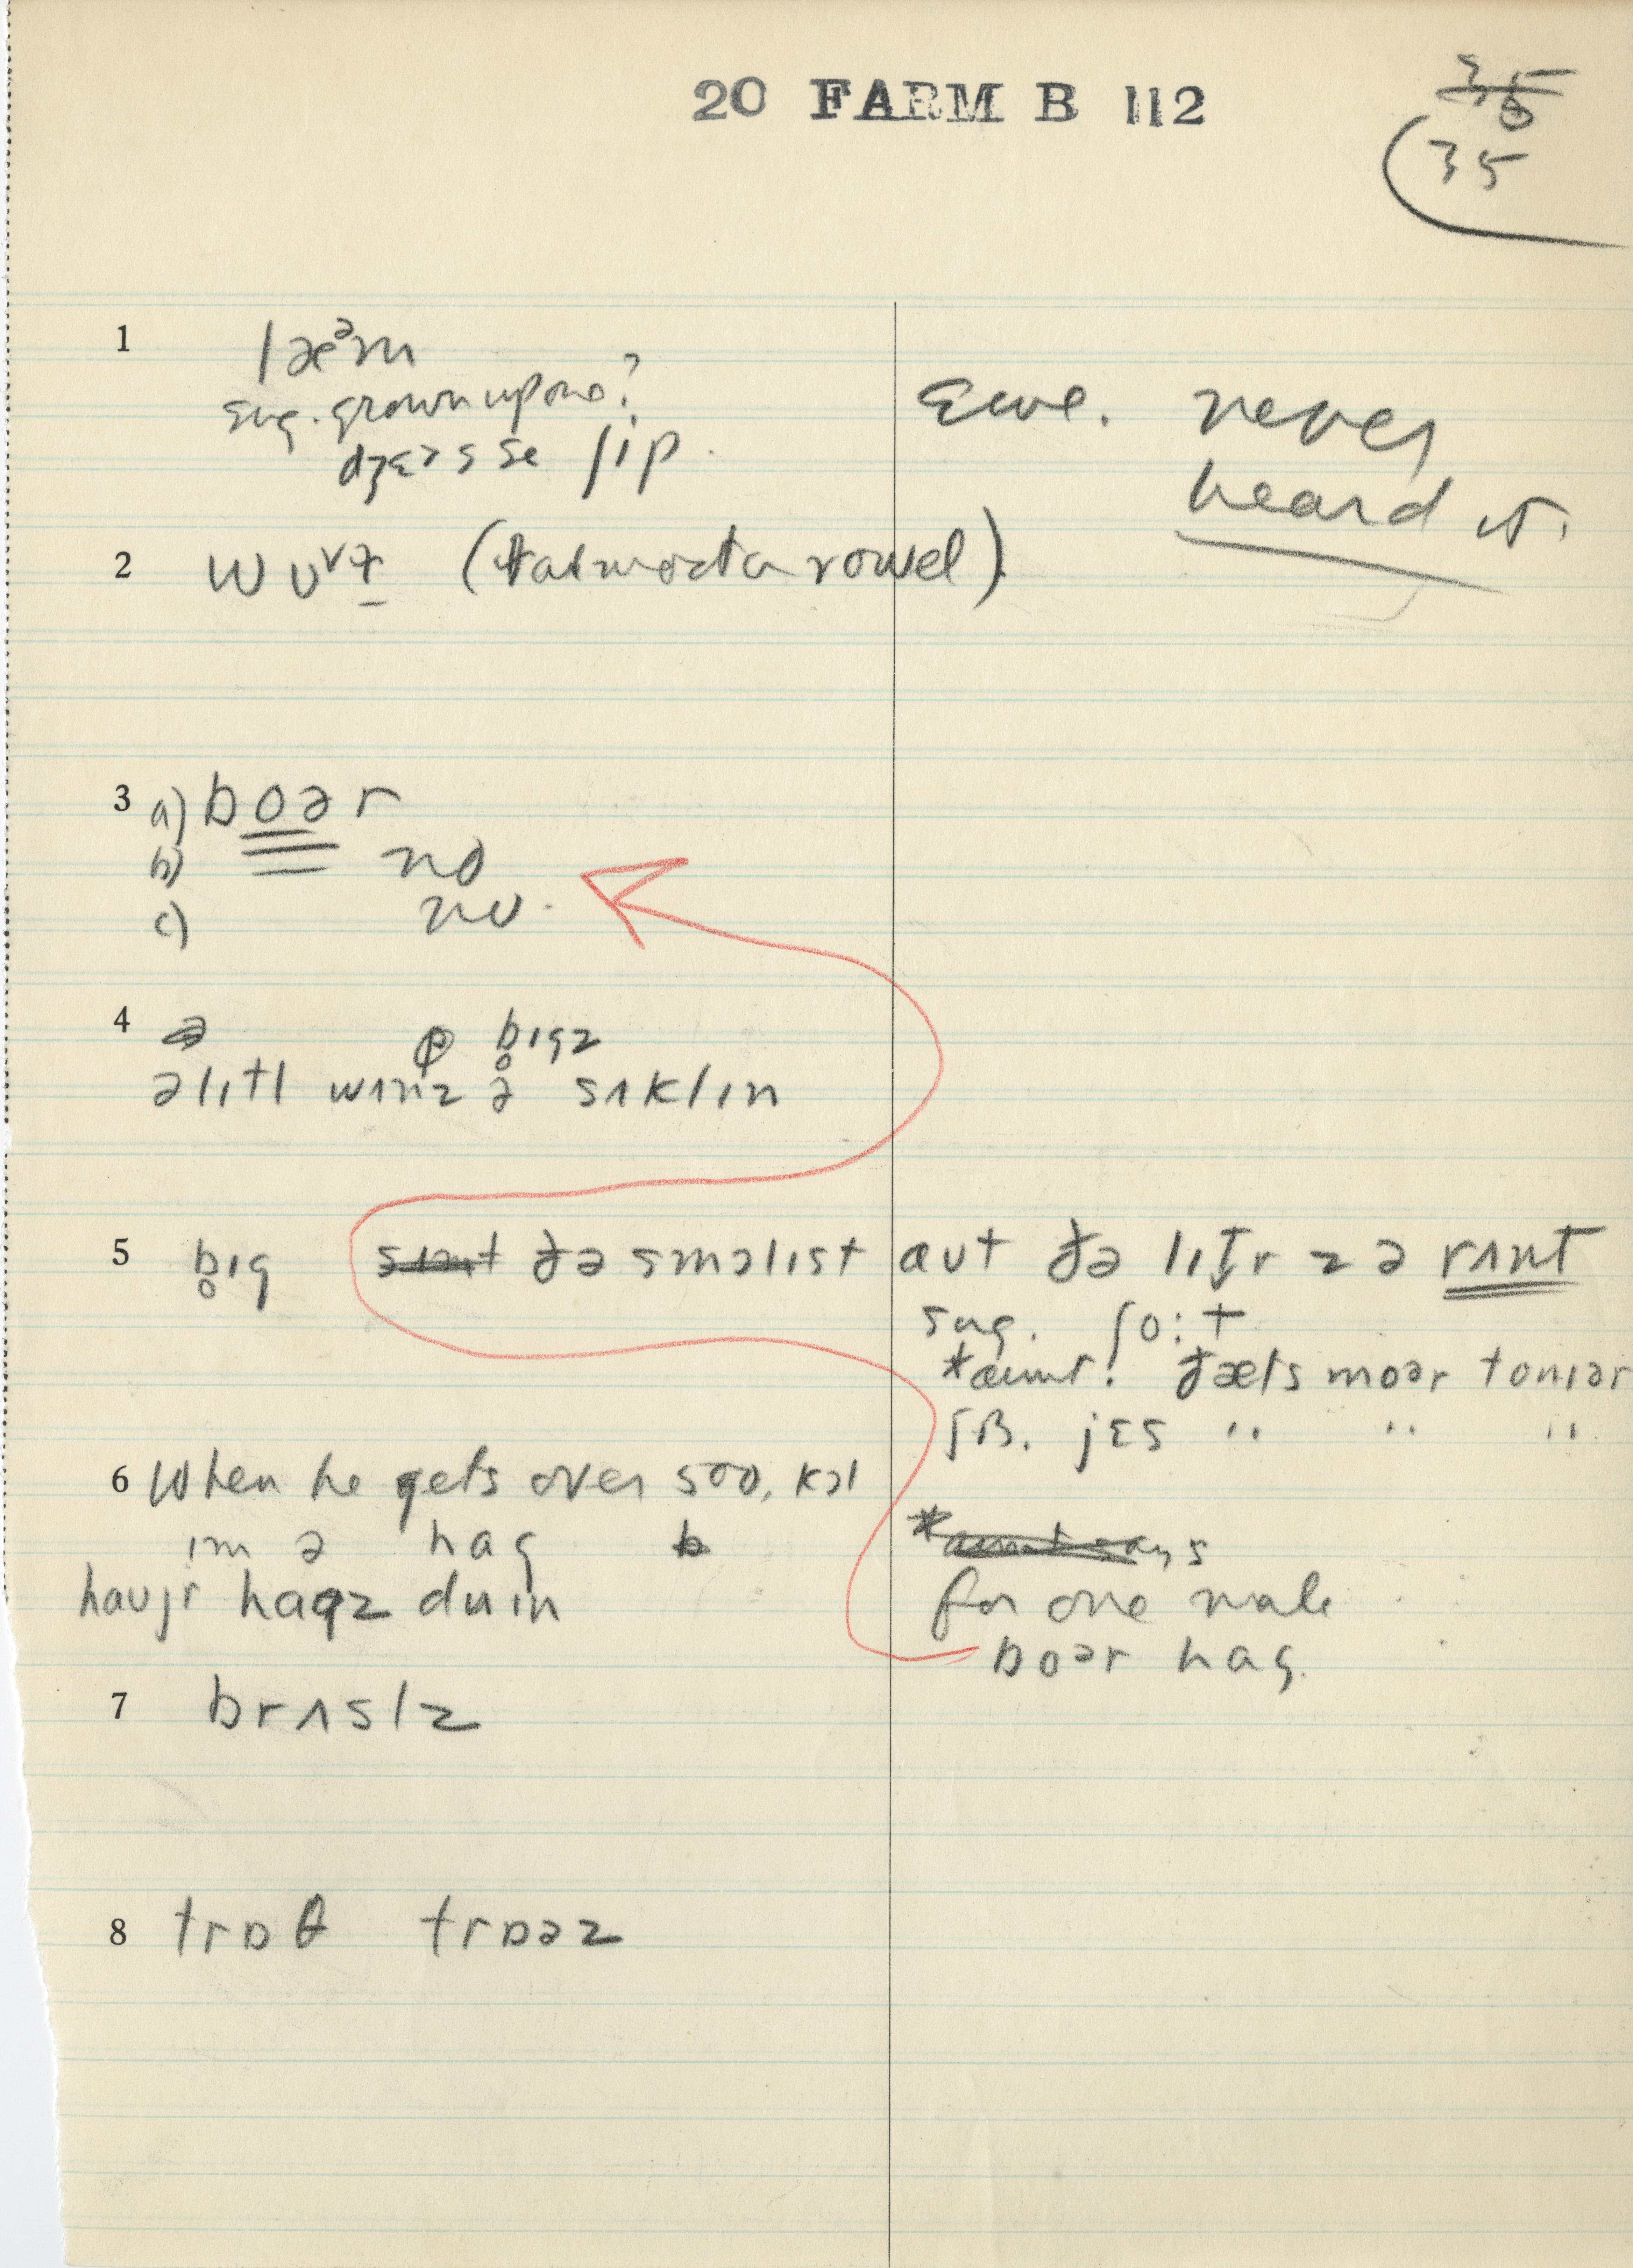 20 FARM B 112
35
1 læᵊm
sug. grown up one?
ʃip.
Ewe. never
heard it.
2 wʊ (that most a vowel)
3 a) boər
b) no
c) no.
4 bɪgz
ə lɪtl wʌnz ə sʌklɪn
5 bɪg ðə smɔlɪst aʊt ðə lɪt̬r z ə rʌnt
sug. ʃo:t
*aunt! ðæts moər toniər
FB. jɛs " " "
6 When he gets over 500, kɔl
ɪm ə hag
haʊjr hagz duɪn
for one male
boər hag.
7 brʌslz
8 trɒθ trɒəz